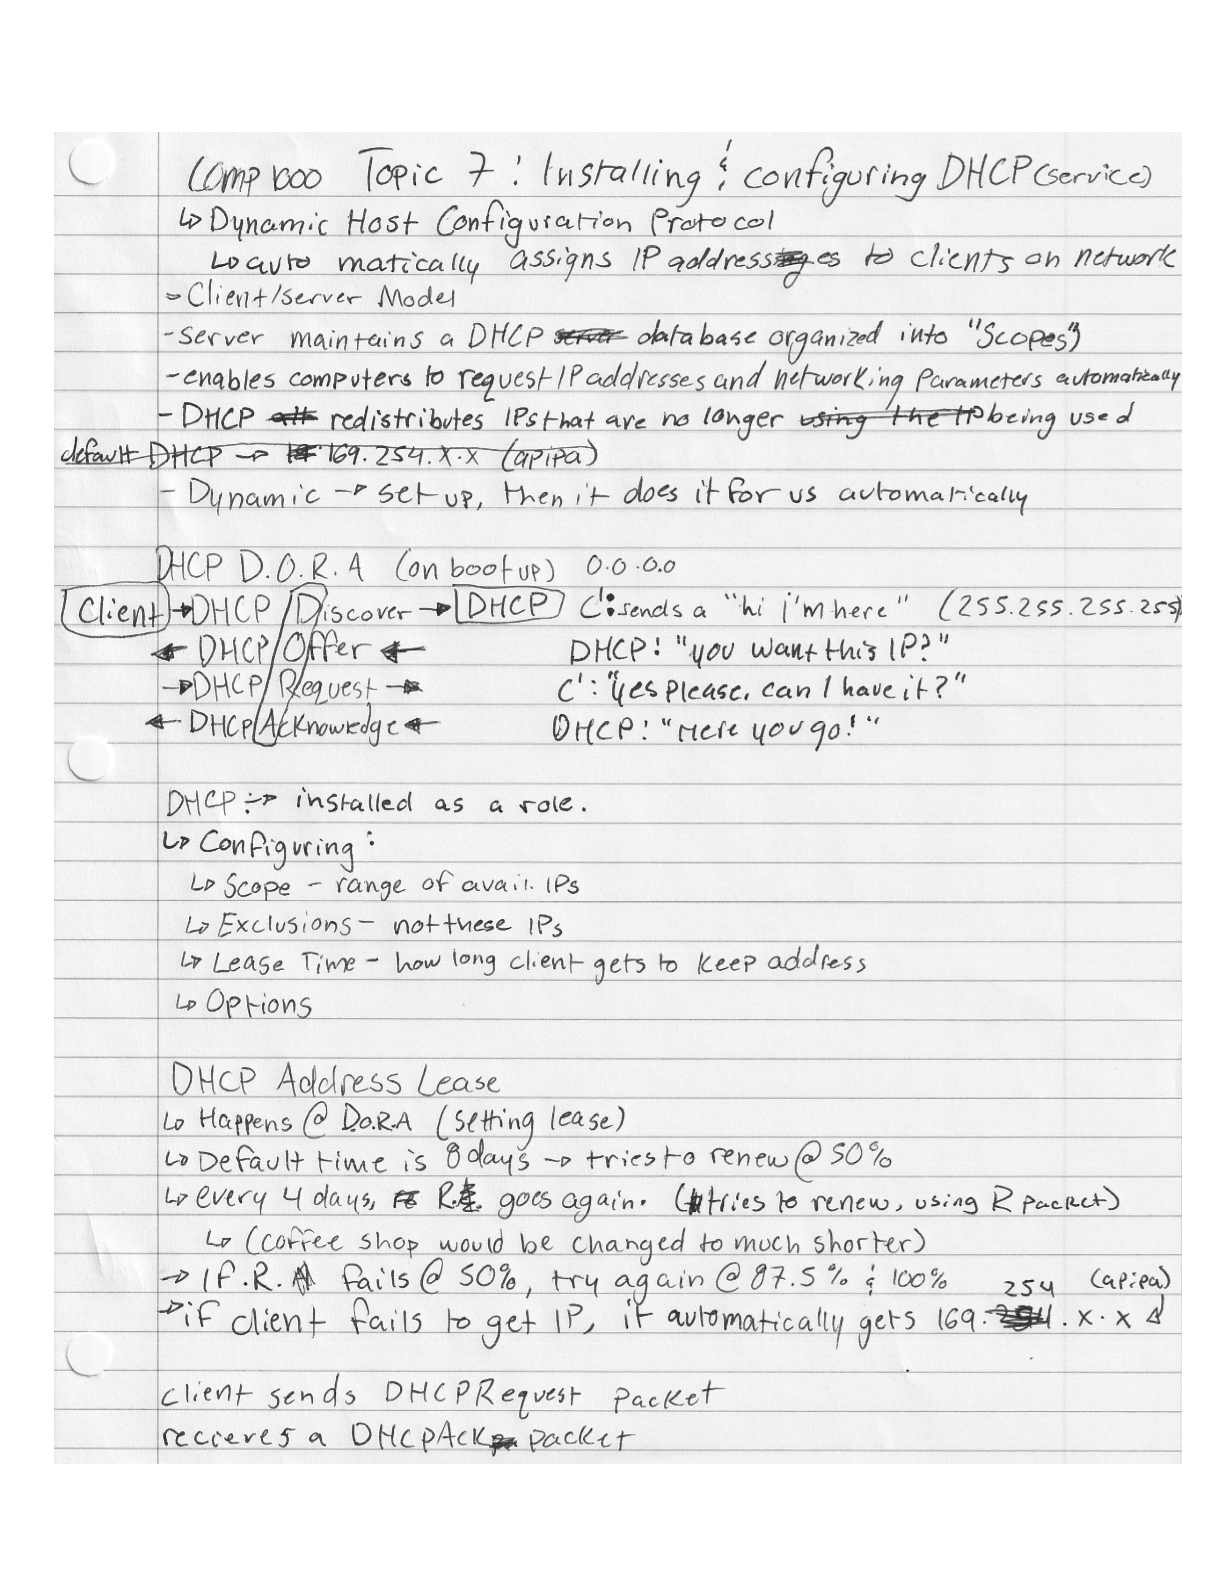 Comp 1000 Topic 7: Installing & configuring DHCP (service)
↳ Dynamic Host Configuration Protocol
↳ automatically assigns IP addresses to clients on network
- Client/server Model
- server maintains a DHCP server database organized into "Scopes")
- enables computers to request IP addresses and networking parameters automatically
- DHCP redistributes IPs that are no longer using the IP being used
default DHCP → 169.254.x.x (apipa)
- Dynamic → set up, then it does it for us automatically
DHCP D.O.R.A (on boot up) 0.0.0.0
Client → DHCP Discover → DHCP C: sends a "hi i'm here" (255.255.255.255)
← DHCP Offer ← DHCP: "you want this IP?"
→ DHCP Request → C: "Yes please, can I have it?"
← DHCP Acknowledge ← DHCP: "Here you go!"
DHCP: → installed as a role.
↳ Configuring:
↳ Scope - range of avail. IPs
↳ Exclusions - not these IPs
↳ Lease Time - how long client gets to keep address
↳ Options
DHCP Address Lease
↳ Happens @ D.O.R.A (setting lease)
↳ Default time is 8 days → tries to renew @ 50%
↳ every 4 days, R. goes again. (tries to renew, using R packet)
↳ (coffee shop would be changed to much shorter)
→ If R. fails @ 50%, try again @ 87.5% & 100%
→ if client fails to get IP, it automatically gets 169.254.x.x (apipa)
client sends DHCPRequest packet
recieves a DHCPAck packet